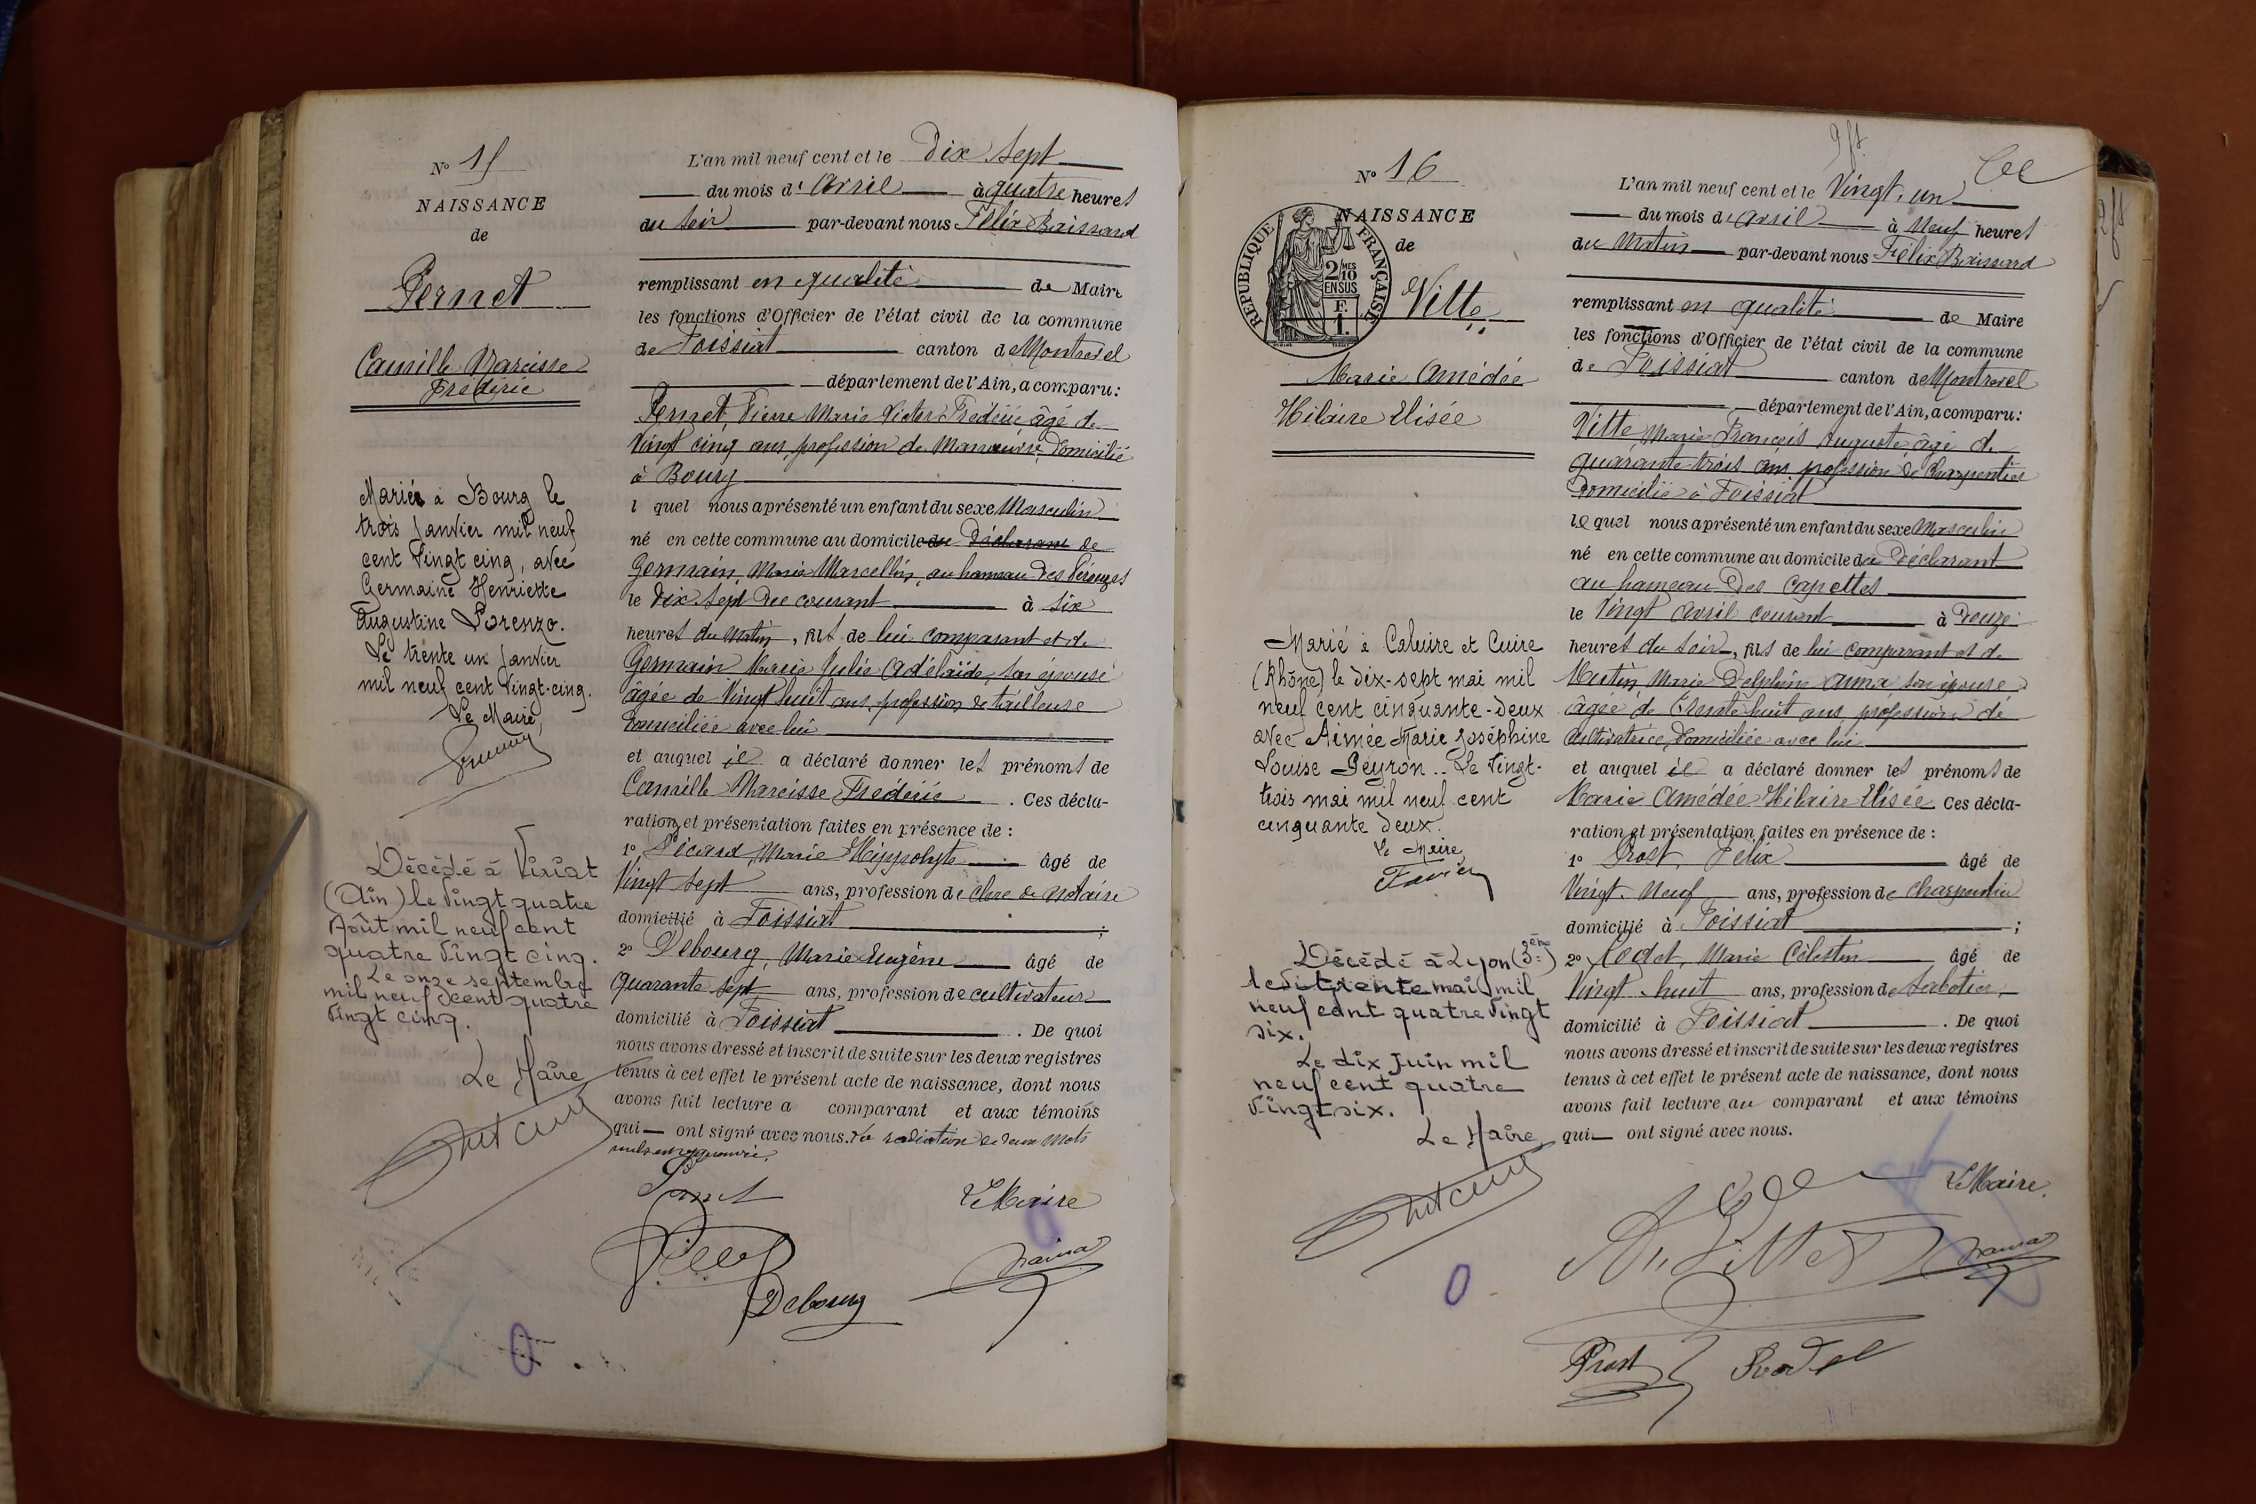 N° 15
NAISSANCE
de
Pernet
Camille Narcisse
Frédéric
Marié à Bourg le
trois Janvier mil neuf
cent vingt cinq, avec
Germaine Henriette
Augustine Lorenzo.
Le trente un Janvier
mil neuf cent vingt-cinq.
Le Maire,
Décédé à Viriat
(Ain) le vingt quatre
Août mil neuf cent
quatre vingt cinq.
Le onze septembre
mil neuf cent quatre
vingt cinq.
Le Maire
L'an mil neuf cent et le Dix Sept
du mois d'Avril à quatre heures
du soir par-devant nous Félix Boissard
remplissant en qualité de Maire
les fonctions d'Officier de l'état civil de la commune
de Foissiat canton de Montrevel
département de l'Ain, a comparu :
Pernet, Pierre Marie Victor Frédéric âgé de
Vingt cinq ans, profession de Manœuvre, domicilié
à Bourg
l quel nous a présenté un enfant du sexe Masculin
né en cette commune au domicile du Déclarant de
Germain, Marie Marcellin, au hameau des
le dix Sept du courant à six
heures du Matin, fils de lui comparant et de
Germain Marie Julie Adélaïde, son épouse
âgée de Vingt huit ans, profession de tailleuse
domiciliée avec lui
et auquel il a déclaré donner les prénoms de
Camille Narcisse Frédéric . Ces décla-
ration et présentation faites en présence de :
1° Picard, Marie Hippolyte âgé de
Vingt sept ans, profession de clerc de Notaire
domicilié à Foissiat ;
2° Debourg, Marie Eugène âgé de
quarante sept ans, profession de cultivateur
domicilié à Foissiat . De quoi
nous avons dressé et inscrit de suite sur les deux registres
tenus à cet effet le présent acte de naissance, dont nous
avons fait lecture a comparant et aux témoins
qui ont signé avec nous. La radiation de deux mots
nuls est approuvée.
Le Maire
Debourg
N° 16
NAISSANCE
de
RÉPUBLIQUE FRANÇAISE
2/10 MES
EN SUS
1 F.
Vitte
Marie Amédée
Hilaire Elisée
Marié à Caluire et Cuire
(Rhône) le dix-sept mai mil
neuf cent cinquante-deux
avec Aimée Marie Joséphine
Louise Peyron.. Le vingt-
trois mai mil neuf cent
cinquante deux.
Le Maire,
Favier
Décédé à Lyon (3ème)
le trente mai mil
neuf cent quatre vingt
six.
Le dix Juin mil
neuf cent quatre
vingt six.
Le Maire
L'an mil neuf cent et le Vingt-un
du mois d'Avril à Neuf heures
du Matin par-devant nous Félix Boissard
remplissant en qualité de Maire
les fonctions d'Officier de l'état civil de la commune
de Foissiat canton de Montrevel
département de l'Ain, a comparu :
Vitte, Marie François Auguste, âgé de
quarante trois ans, profession de Charpentier
domicilié à Foissiat
lequel nous a présenté un enfant du sexe Masculin
né en cette commune au domicile du Déclarant
au hameau Des Capettes
le Vingt Avril courant à Douze
heures du Soir, fils de lui comparant et de
Marie Delphine son épouse
âgée de Trente huit ans, profession de
cultivatrice, domiciliée avec lui
et auquel il a déclaré donner les prénoms de
Marie Amédée Hilaire Elisée Ces décla-
ration et présentation faites en présence de :
1° Prost, Félix âgé de
Vingt-Neuf ans, profession de Charpentier
domicilié à Foissiat ;
2° Marie Célestin âgé de
Vingt-huit ans, profession de Sabotier
domicilié à Foissiat . De quoi
nous avons dressé et inscrit de suite sur les deux registres
tenus à cet effet le présent acte de naissance, dont nous
avons fait lecture au comparant et aux témoins
qui ont signé avec nous.
Le Maire.
Prost